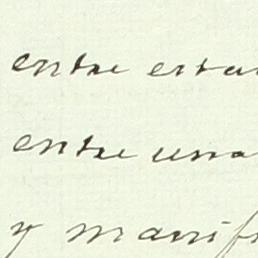 entre esta
entre una
y manif